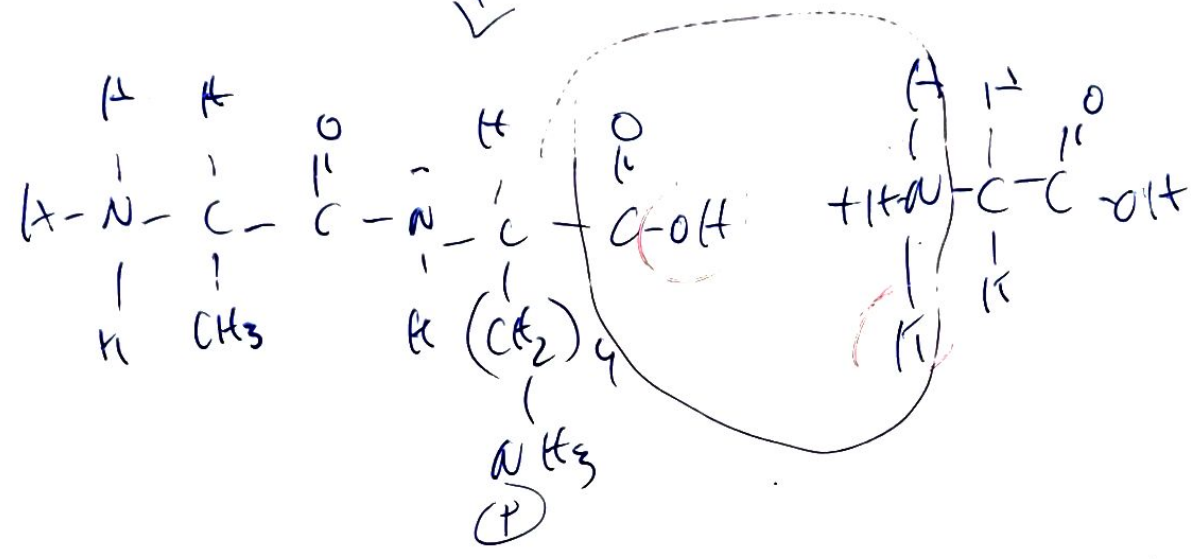 H H H H H
O O O
H-N-C-C-N-C-C-OH H-N-C-C-OH
H CH3 H (CH2)4 H H
NH3
+